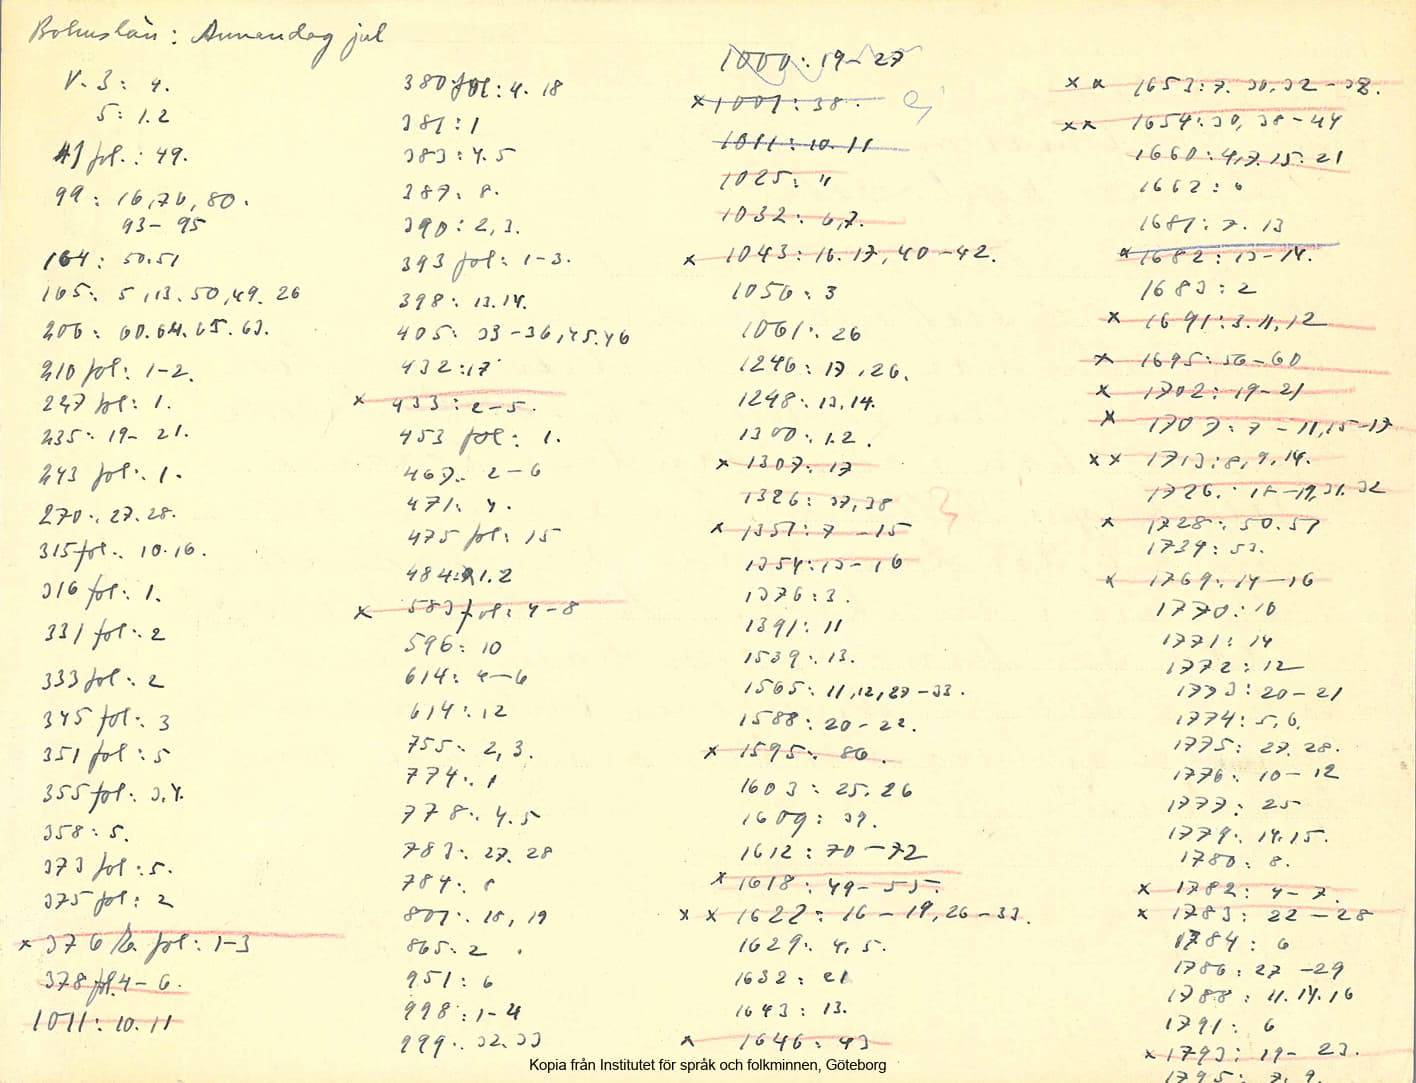 Bohuslän: Annandag jul
V. 3: 4.
5: 1.2
41 fol.: 49.
99: 16,76, 80.
93-95
164: 50.51
165: 5,13.50,49.26
206: 60.64.65.63.
210 fol: 1-2.
227 fol: 1.
235: 19-21.
243 fol: 1.
270: 27.28.
315 fol: 10.16.
316 fol: 1.
331 fol: 2
333 fol: 2
345 fol: 3
351 fol: 5
355 fol: 3,4.
358: 5.
373 fol: 5.
375 fol: 2
x 376 fol: 1-3
378 fol. 4-6.
1011: 10.11
380 fol: 4.18
381: 1
383: 4.5
387: 8.
390: 2,3.
393 fol: 1-3.
398: 13.14.
405: 33-36,45.46
432: 17
x 433: 2-5.
453 fol: 1.
467: 2-6
471: 4.
475 fol: 15
484: 1.2
x 583 fol: 4-8
596: 10
614: 4-6
614: 12
755: 2,3.
774: 1
778: 4.5
783: 27.28
784: 8
801: 18,19
865: 2
951: 6
998: 1-4
999: 32.33
1000: 19-27
x 1001: 38. ej
1011: 10.11
1025: 4
1032: 6,7.
x 1043: 16.17,40-42.
1056: 3
1061: 26
1246: 17,26.
1248: 13,14.
1300: 1.2.
x 1307: 17
1326: 37,38
x 1351: 7-15
1354: 13-16
1376: 3.
1391: 11
1539: 13.
1565: 11,12,27-33.
1588: 20-22.
x 1595: 86.
1603: 25.26
1609: 39.
1612: 70-72
x 1618: 49-55.
x x 1622: 16-19,26-33.
1629: 4,5.
1632: 21
1643: 13.
x 1646: 43
x x 1653: 7.30.32-38.
x x 1654: 30,38-44
1660: 4,7.15.21
1662: 6
1681: 7.13
x 1682: 13-14.
1683: 2
x 1691: 3.11,12
x 1695: 56-60
x 1702: 19-21
x 1707: 7-11,15-17
x x 1713: 8,9,14.
1726: 18-19,31.32
x 1728: 50.51
1739: 53.
x 1769: 14-16
1770: 10
1771: 14
1772: 12
1773: 20-21
1774: 5,6.
1775: 27.28.
1776: 10-12
1777: 25
1779: 14.15.
1780: 8.
x 1782: 4-7.
x 1783: 22-28
1784: 6
1786: 27-29
1788: 11.14.16
1791: 6
x 1793: 19-23.
1795: 7.9.
Kopia från Institutet för språk och folkminnen, Göteborg